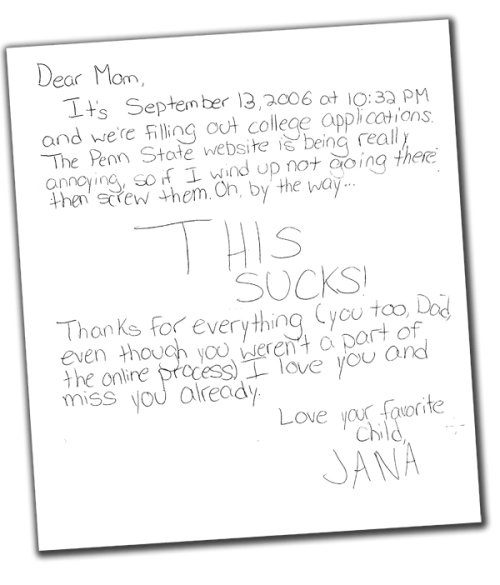 Dear Mom,
It's September 13, 2006 at 10:32 PM
and we're filling out college applications.
The Penn State website is being really
annoying, so if I wind up not going there
then screw them. Oh, by the way...
THIS
SUCKS!
Thanks for everything (you too, Dad,
even though you weren't a part of
the online process) I love you and
miss you already.
Love your favorite
child,
JANA